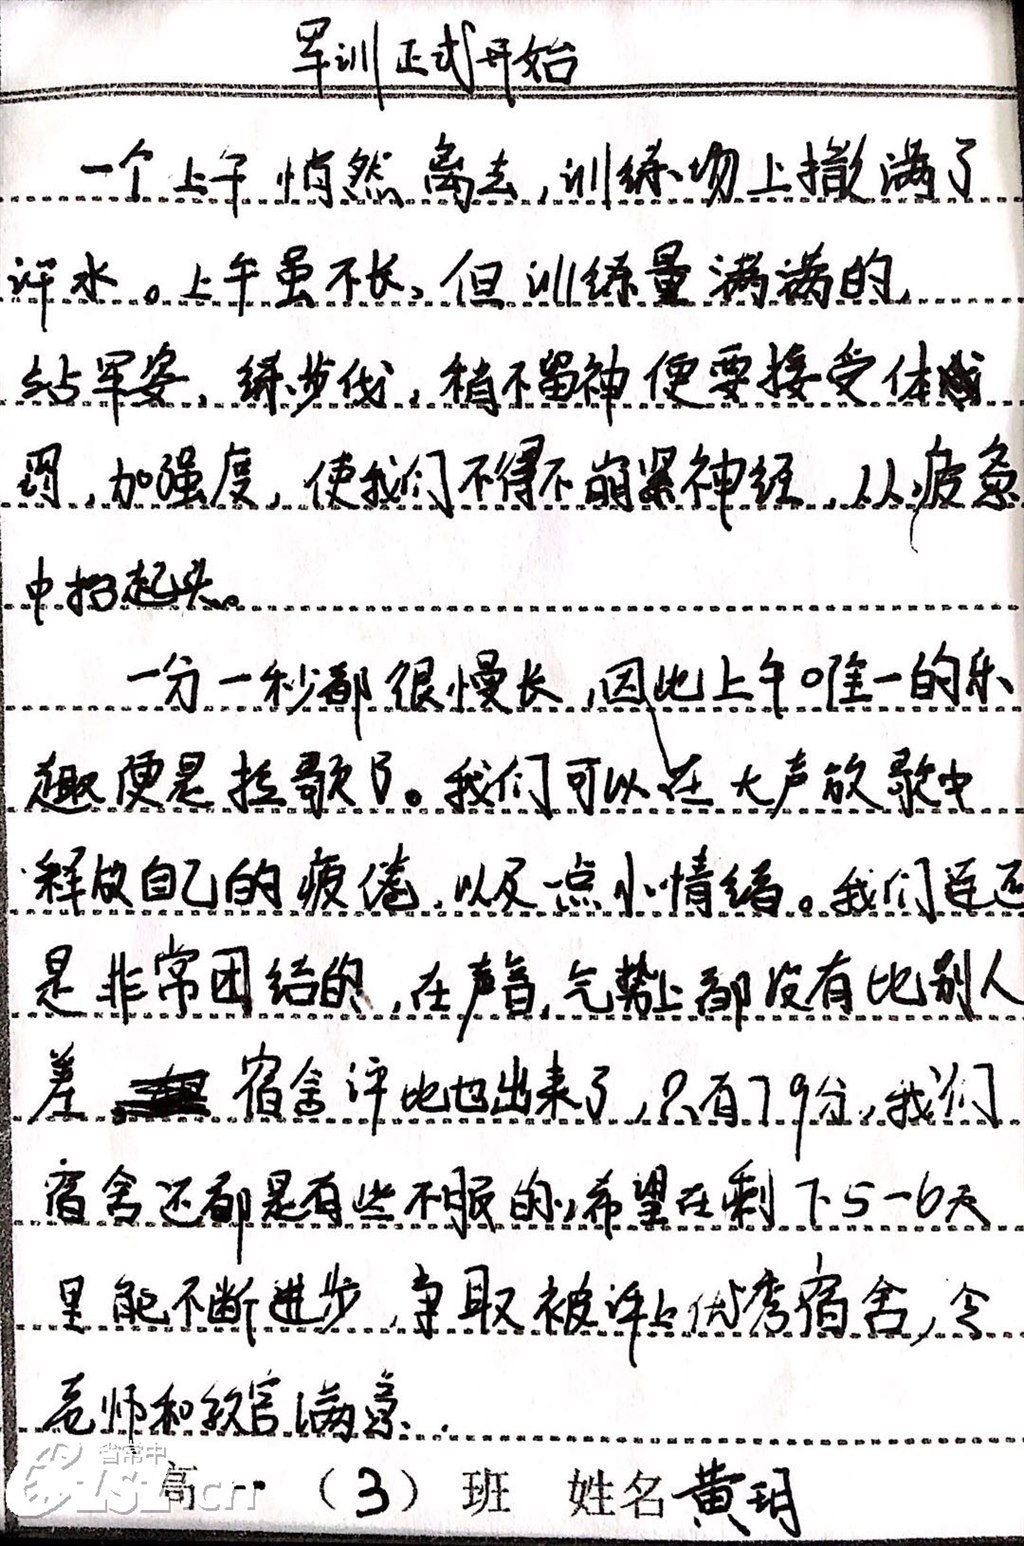 军训正式开始
一个上午悄然离去,训练场上撒满了
汗水。上午虽不长,但训练量满满的,
站军姿,练步伐,稍不留神便要接受体
罚,加强度,使我们不得不崩紧神经,从疲惫
中抬起头。
一分一秒都很慢长,因此上午唯一的乐
趣便是拉歌了。我们可以在大声放歌中
释放自己的疲倦,以及一点小情绪。我们连还
是非常团结的,在声音,气势上都没有比别人
差。宿舍评比也出来了,只有79分,我们
宿舍还都是有些不服的,希望在剩下5-6天
里能不断进步,争取被评上优秀宿舍,令
老师和教官满意.
省常中
高一(3)班 姓名黄玥